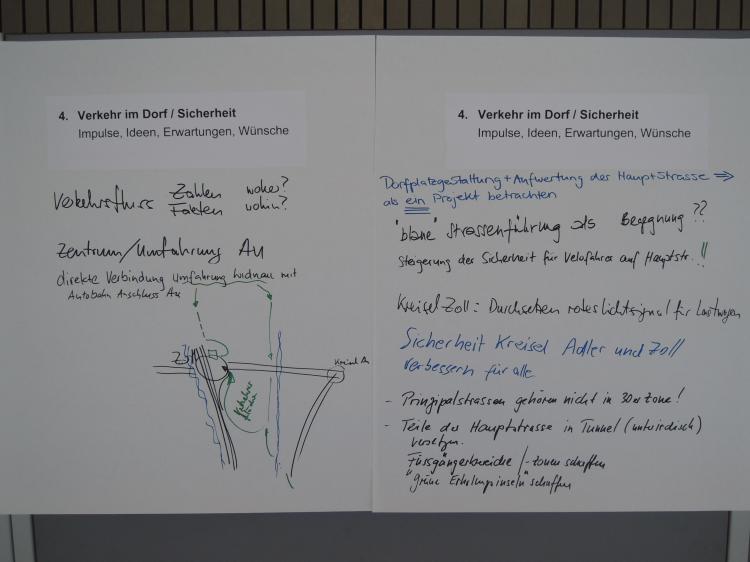 4. Verkehr im Dorf / Sicherheit
Impulse, Ideen, Erwartungen, Wünsche
Verkehrsfluss Zahlen woher?
Fakten wohin?
Zentrum/Umfahrung Au
direkte Verbindung Umfahrung Widnau mit
Autobahn Anschluss Au
Zoll
Kreisel Au
4. Verkehr im Dorf / Sicherheit
Impulse, Ideen, Erwartungen, Wünsche
Dorfplatzgestaltung + Aufwertung der Hauptstrasse ⇒
als ein Projekt betrachten
"blaue" Strassenführung als Begegnung ??
Steigerung der Sicherheit für Velofahrer auf Hauptstr. !!
Kreisel Zoll = Durchsetzen rotes Lichtsignal für Lastwagen
Sicherheit Kreisel Adler und Zoll
verbessern für alle
- Prinzipalstrassen gehören nicht in 30er Zone!
- Teile der Hauptstrasse in Tunnel (unterirdisch)
versetzen.
Füssgängerbereiche / -zonen schaffen
"grüne Erholungsinseln" schaffen